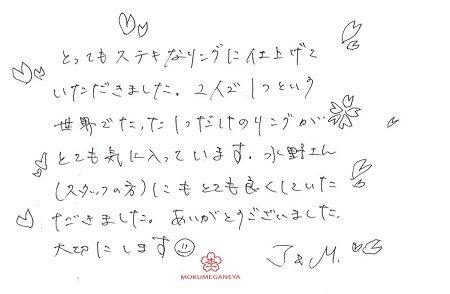 とってもステキなリングに仕上げて
いただきました。2人で1つという
世界でたった1つだけのリングが
とても気に入っています。水野さん
(スタッフの方)にもとても良くしていた
だきました。ありがとうございました。
大切にします
J & M.
MOKUMEGANEYA